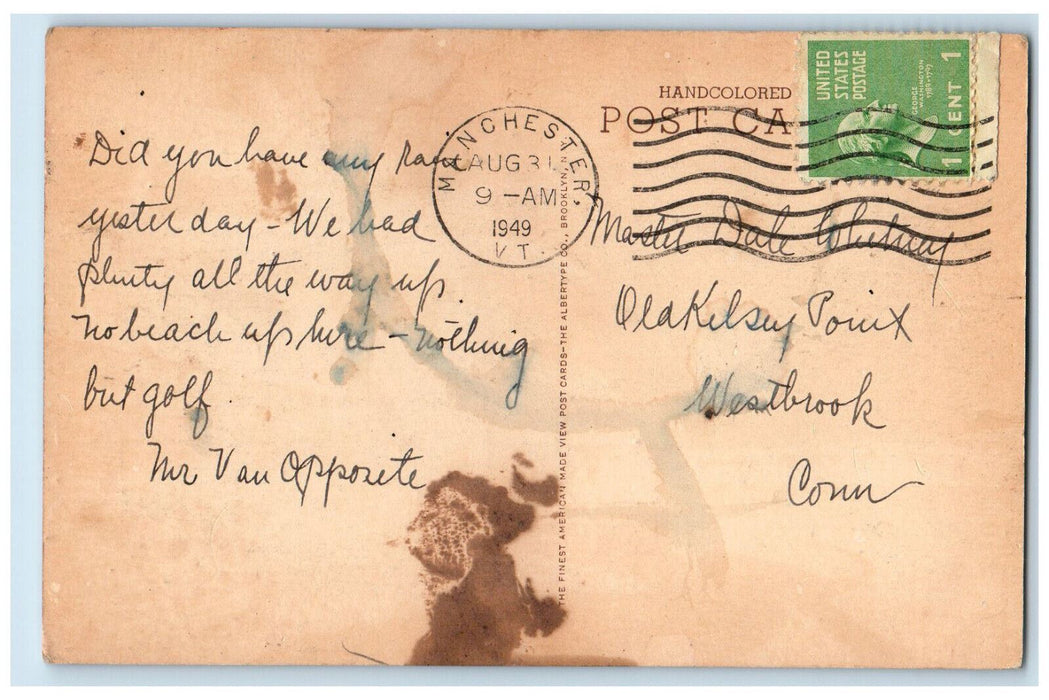 HANDCOLORED
POST CA
UNITED
STATES
POSTAGE
GEORGE
WASHINGTON
1789-1797
1 CENT 1
MANCHESTER
AUG 31
9 - AM
1949
VT.
Did you have any rain
yesterday - We had
plenty all the way up.
No beach up here - nothing
but golf.
Mr Van Opposite
THE FINEST AMERICAN MADE VIEW POST CARDS-THE ALBERTYPE CO., BROOKLYN, N.
Master Dale Whitney
Old Kelsey Point
Westbrook
Conn